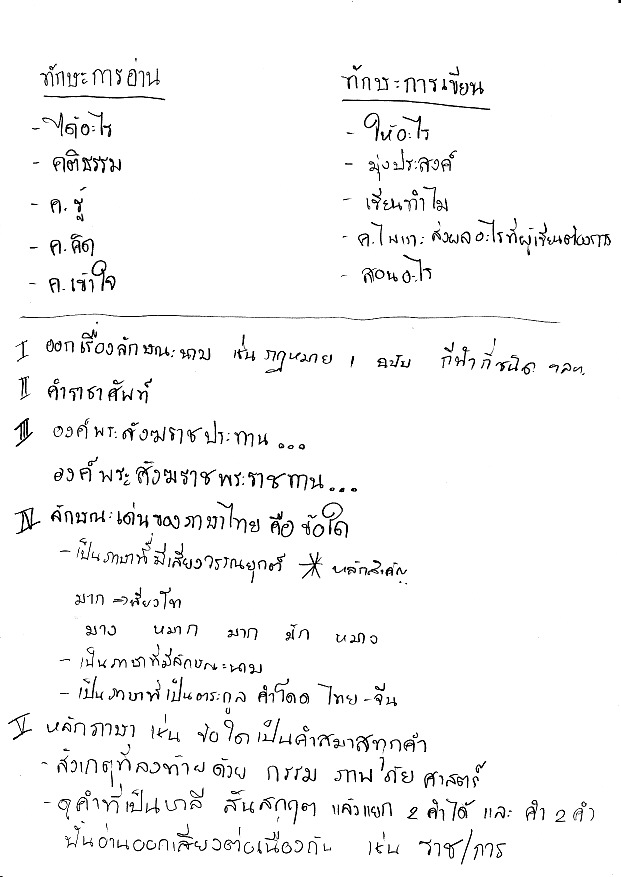 ทักษะการอ่าน
- ได้อะไร
- คติธรรม
- ค.รู้
- ค.คิด
- ค.เข้าใจ
ทักษะการเขียน
- ให้อะไร
- มุ่งประสงค์
- เขียนทำไม
- ค.ไพเราะ ส่งผลอะไรที่ผู้เขียนต้องการ
- สอนอะไร
I ออกเรื่องลักษณะนาม เช่น กฎหมาย 1 ฉบับ กีฬากี่ชนิด ฯลฯ
II คำราชาศัพท์
III องค์พระสังฆราชประทาน...
องค์พระสังฆราชพระราชทาน...
IV ลักษณะเด่นของภาษาไทย คือ ข้อใด
- เป็นภาษาที่มีเสียงวรรณยุกต์ * หลักสำคัญ
มาก ⇒ เสียงโท
มาง หมาก มาก มัก หมาง
- เป็นภาษาที่มีลักษณะนาม
- เป็นภาษาที่เป็นตระกูล คำโดด ไทย - จีน
V หลักภาษา เช่น ข้อใดเป็นคำสมาสทุกคำ
- สังเกตุที่ลงท้ายด้วย กรรม ภาพ ภัย ศาสตร์
- ดูคำที่เป็นบาลี สันสกฤต แล้วแยก 2 คำได้ และ คำ 2 คำ
นั้นอ่านออกเสียงต่อเนื่องกัน เช่น ราช/การ